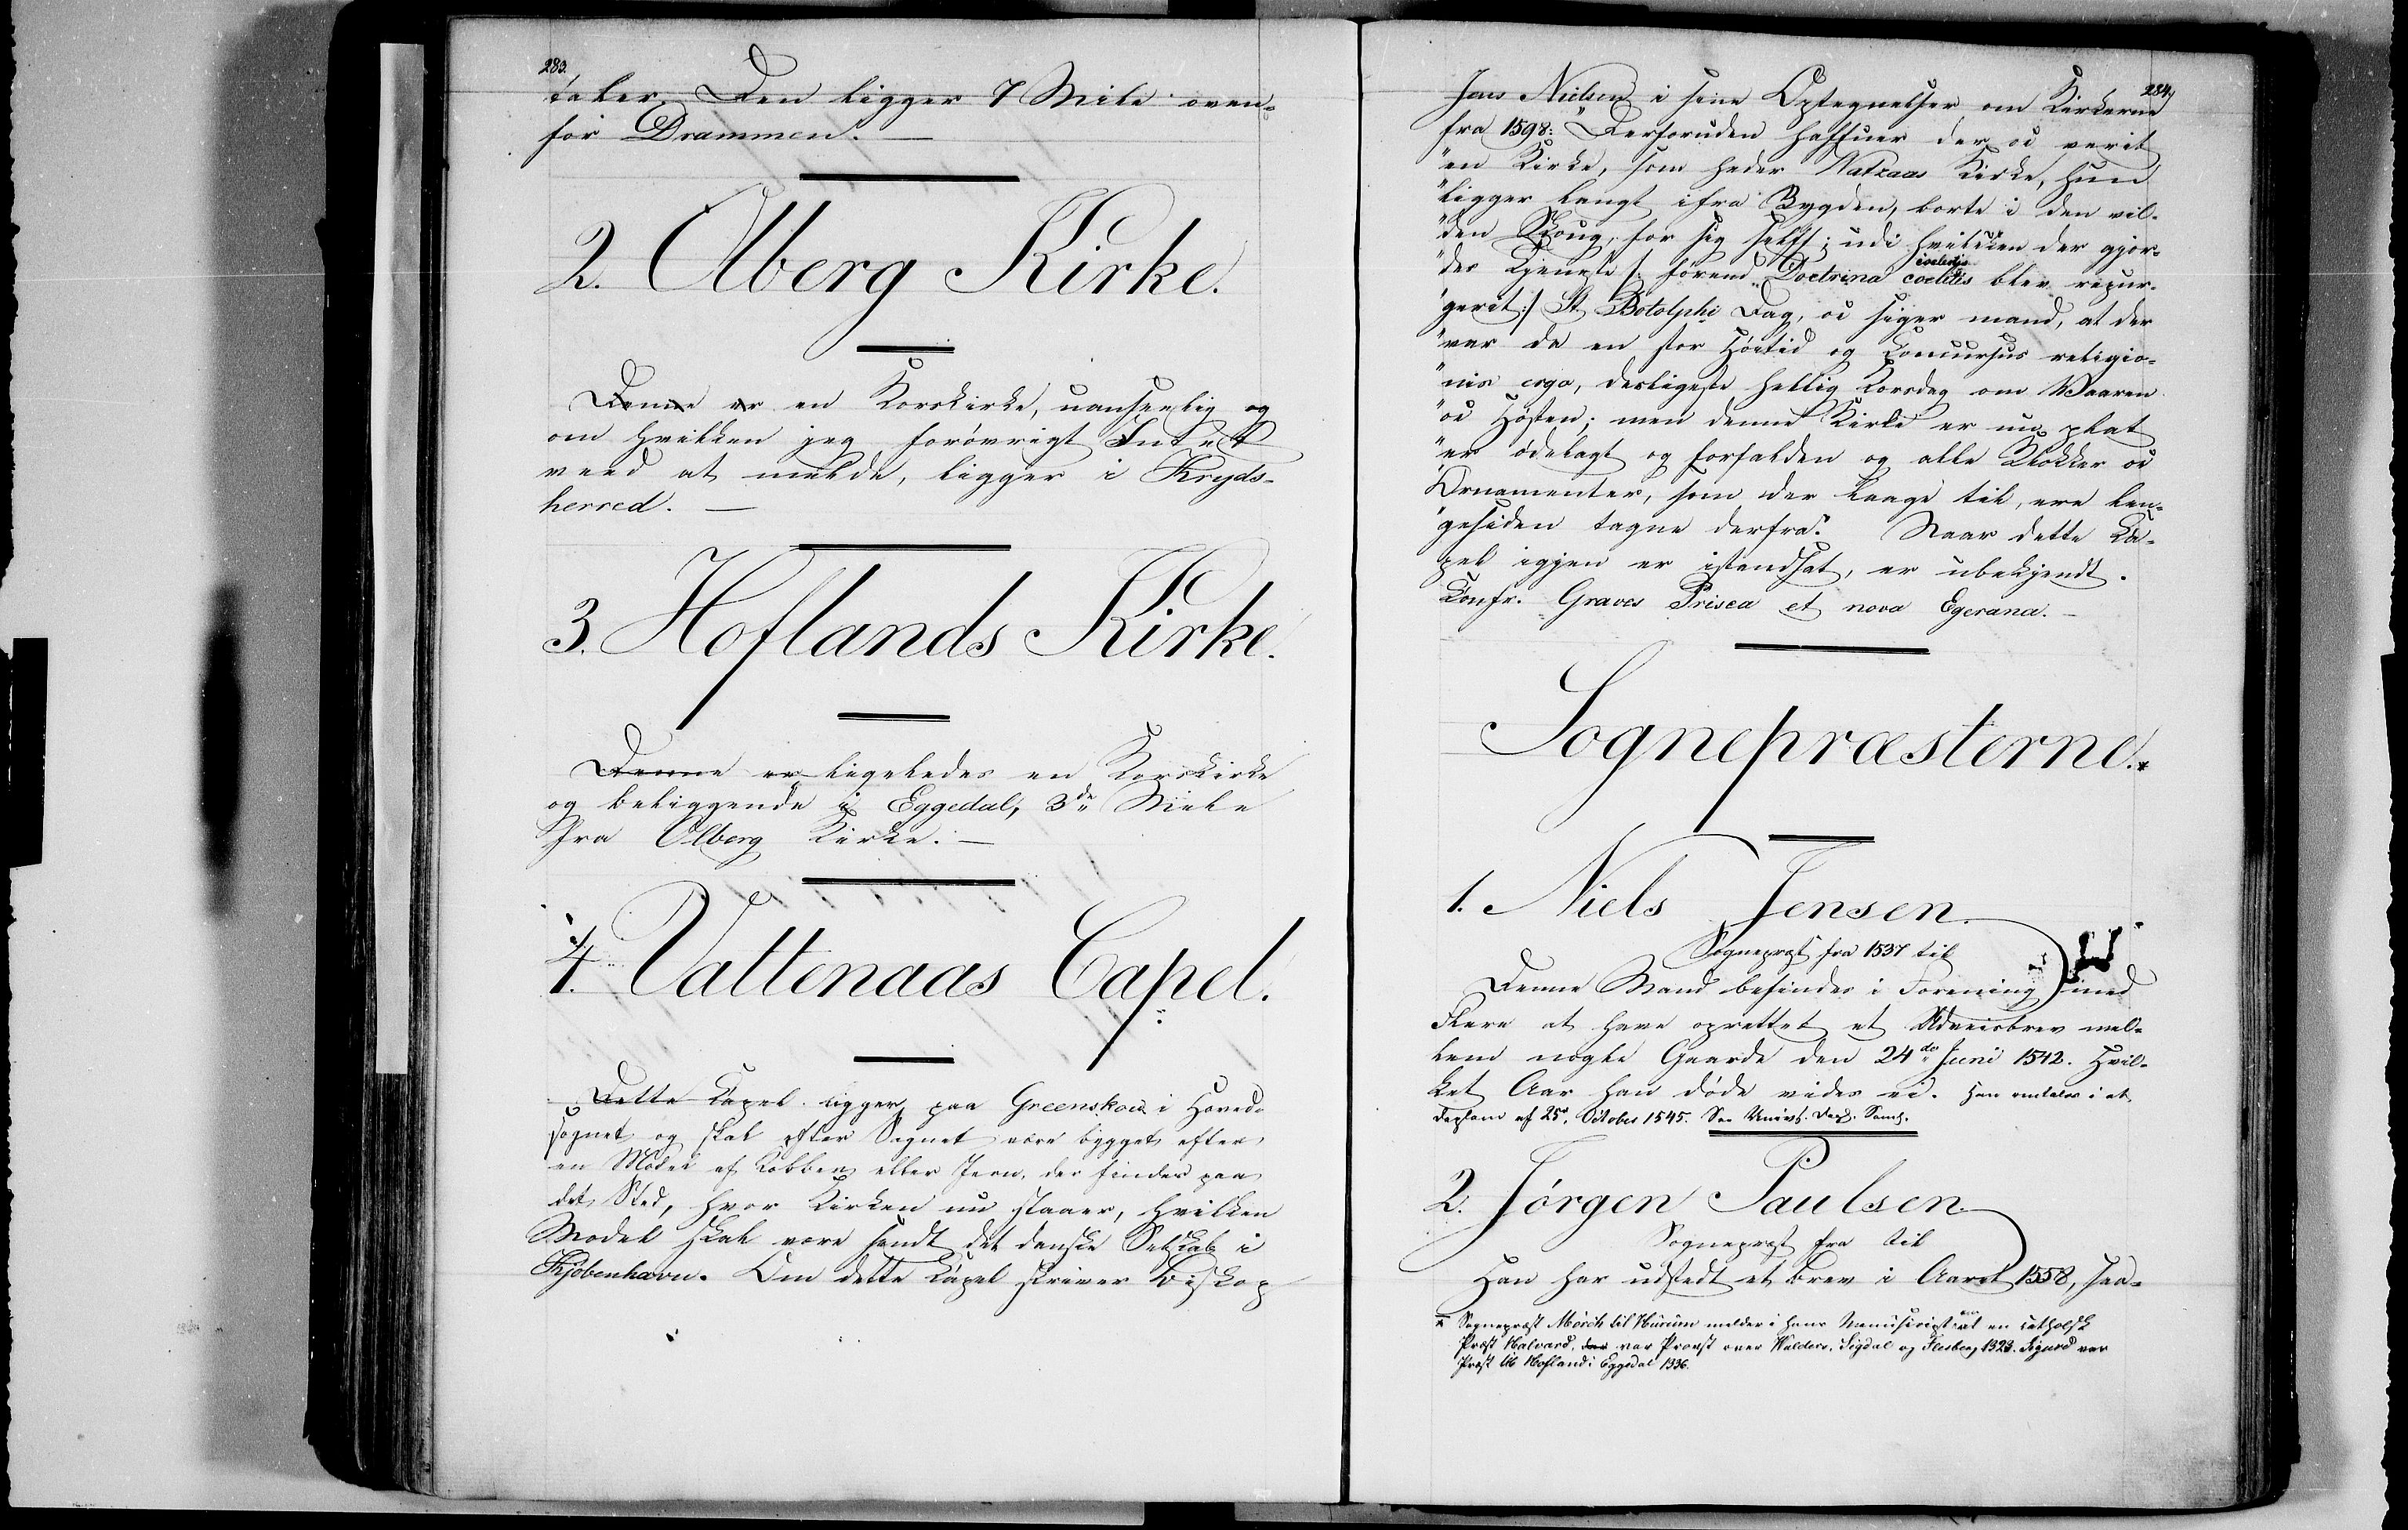 283.
taler. Den ligger 7 Mile oven-
for Drammen. —
2. Olberg Kirke.
Denne er en Korskirke, uanseelig og
om hvilken jeg forøvrigt Intet
veed at melde, ligger i Kryds-
herred. —
3. Hoflands Kirke.
Denne er ligeledes en Korskirke
og beliggende i Eggedal, 3de Miele
fra Olberg Kirke. —
4. Vattenaas Capel.
Dette Capel ligger paa Greenskov i Hoved-
sognet og skal efter Sagnet være bygget efter
en Model af Kobber eller Jern, der findes paa
det Sted, hvor Kirken nu staaer, hvilken
Model skal være sendt det danske Selskab i
Kjøbenhavn. Om dette Capel skriver Biskop
284.
Jens Nielsen i sine Optegnelser om Kirkerne
fra 1598: "Derforuden haffuer der oc verit
"en Kirke, som heder Vatnaas Kirke, hun
"ligger langt ifra Bygden, borte i den vil-
"den Skoug, for sig selff; udi hvilken der gjor-
"des Tjeneste /: førend Doctrina coelitis blev repur-
coelestis
"gerit :/ St Botolphi Dag, oc siger mand, at der
"var da en stor Høitid og Concursus religio-
"nis ergo, desligeste hellig Korsdag om Vaaren
"oc Høsten; men denne Kirke er nu plat
"er ødelagt og forfalden og alle Klokker oc
"Ornamenter, som der laage til, ere len-
"gesiden tagne derfra". Naar dette Ca-
pel igjen er istandsat, er ubekjendt.
Confr. Graves Prisca et nova Egerana. —
Sognepræsterne. *
1. Niels Jensen.
Sognepræst fra 1537 til
Denne Mand befindes i Forening med
Flere at have oprettet et Udviisbrev mel-
lem nogle Gaarde den 24de Juni 1542. Hvil-
ket Aar han døde vides ei. Han omtales i et
Depsom af 25de October 1545. See Univs. Depl. Saml.
2. Jörgen Paulsen
Sognepræst fra til
Han har udstedt et Brev i Aaret 1558, saa-
* Sognepræst Mörch til Hurum melder i hans Manuscript at en catholsk
Præst Halvard, der var Provst over Walders, Sigdal og Flesberg 1323. Sigurd var
Præst til Hofland i Eggedal 1336.